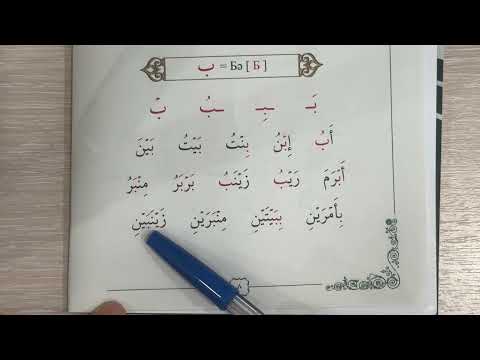 ب = Бə [ Б ]
بَـ ـبِـ ـبُ بْ
أَبُ إِبْنُ بِنْتُ بَيْتُ بَيْنَ
أَبْرَمَ رَيْبُ زَيْنَبُ بَرْبَرُ مِنْبَرُ
بِأَمْرَيْنِ بِبَيْتَيْنِ مِنْبَرَيْنِ زَيْنَبَيْنِ
٨